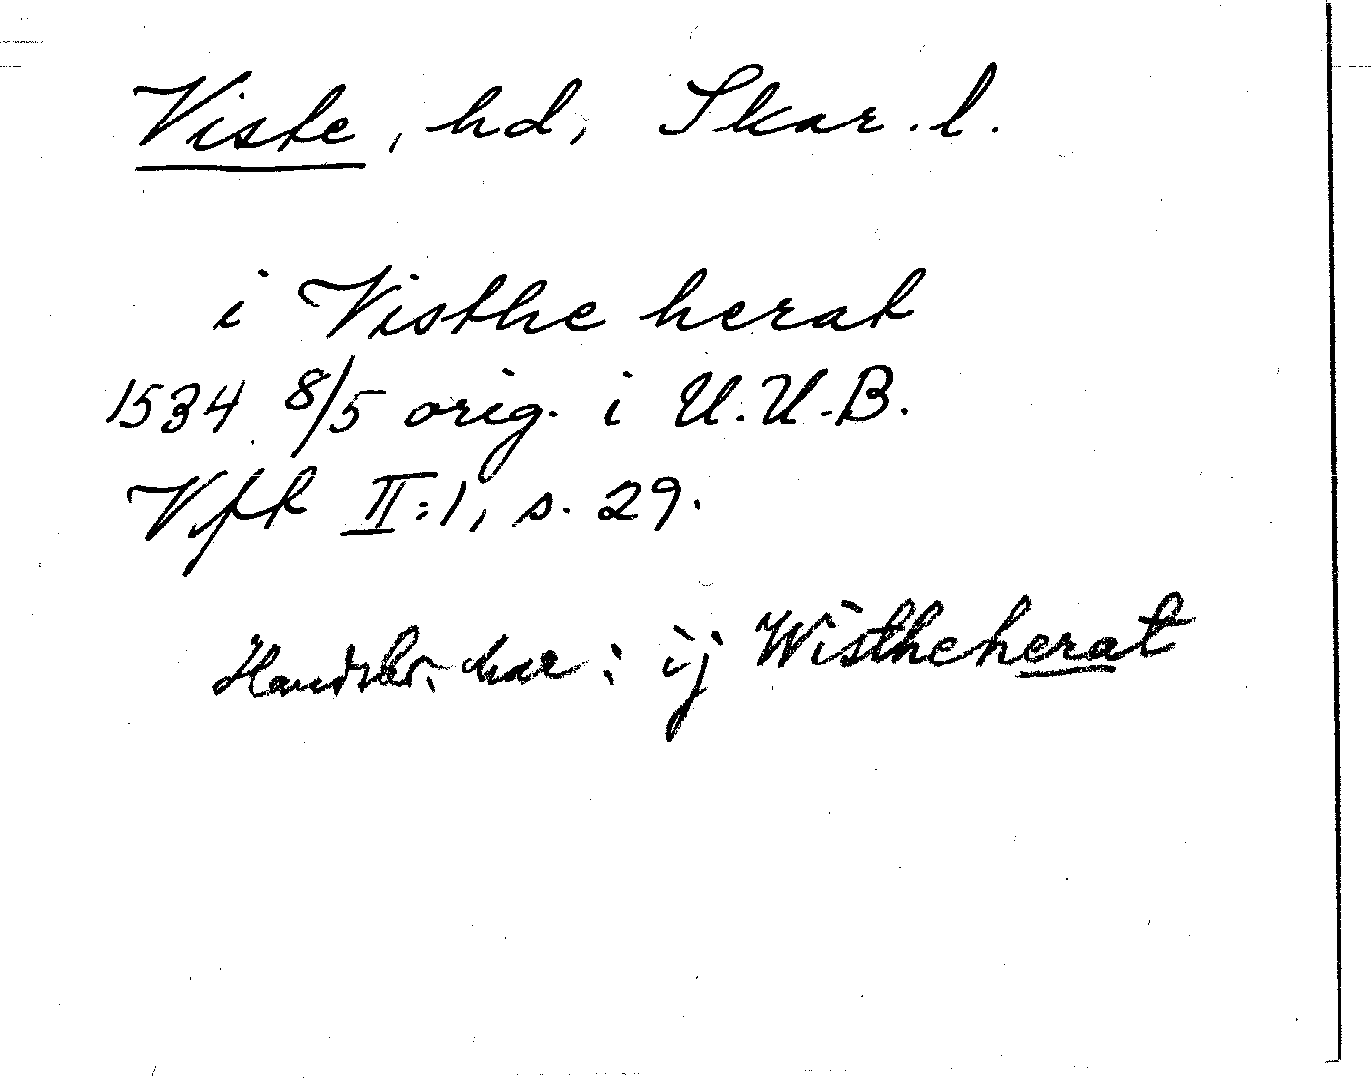 Viste, hd, Skar. l.
i Visthe herat
1534 8/5 orig. i U.U.B.
Vfk II:1, s. 29.
Handskr. har: ij Wistheherat